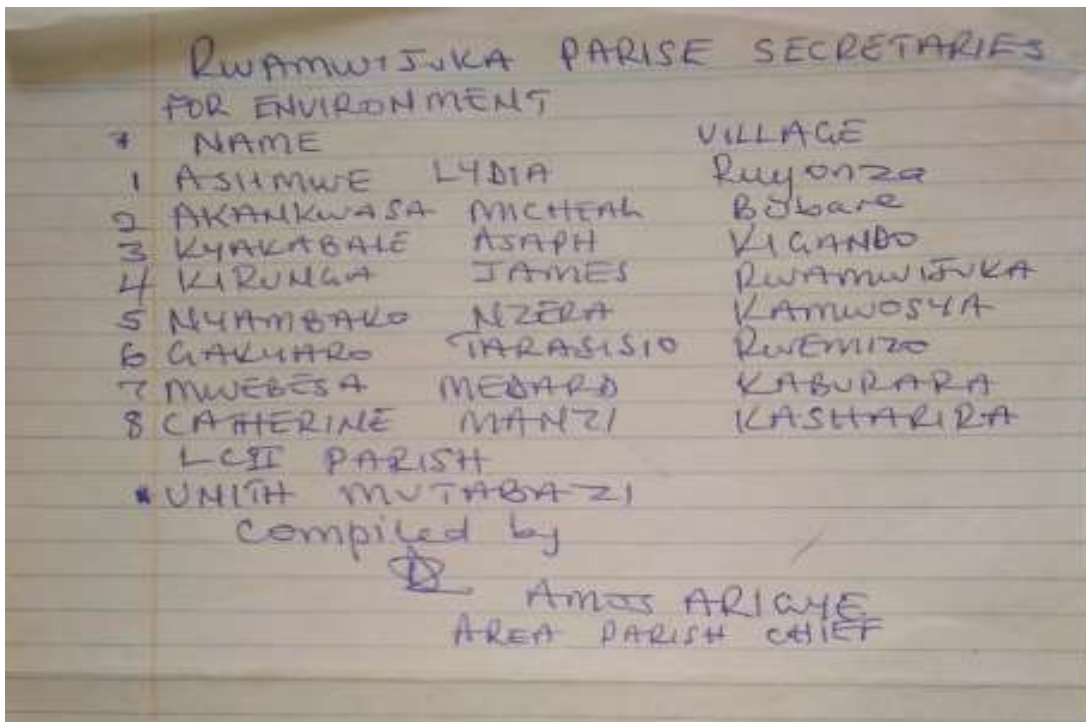 RWAMWIJUKA PARISE SECRETARIES
FOR ENVIRONMENT
* NAME VILLAGE
1 ASIIMWE LYDIA Ruyonza
2 AKANKWASA MICHEAL Bubare
3 KYAKABALE ASAPH KIGANDO
4 KIRUNGA JAMES RWAMWIJUKA
5 NYAMBAKO NZERA KAMWOSYA
6 GAKYARO TARASISIO RWEMIZO
7 MWEBESA MEDARD KABURARA
8 CATHERINE MANZI KASHARIRA
LCII PARISH
* UNITH MUTABAZI
Compiled by
AMOS ARIGYE
AREA PARISH CHIEF